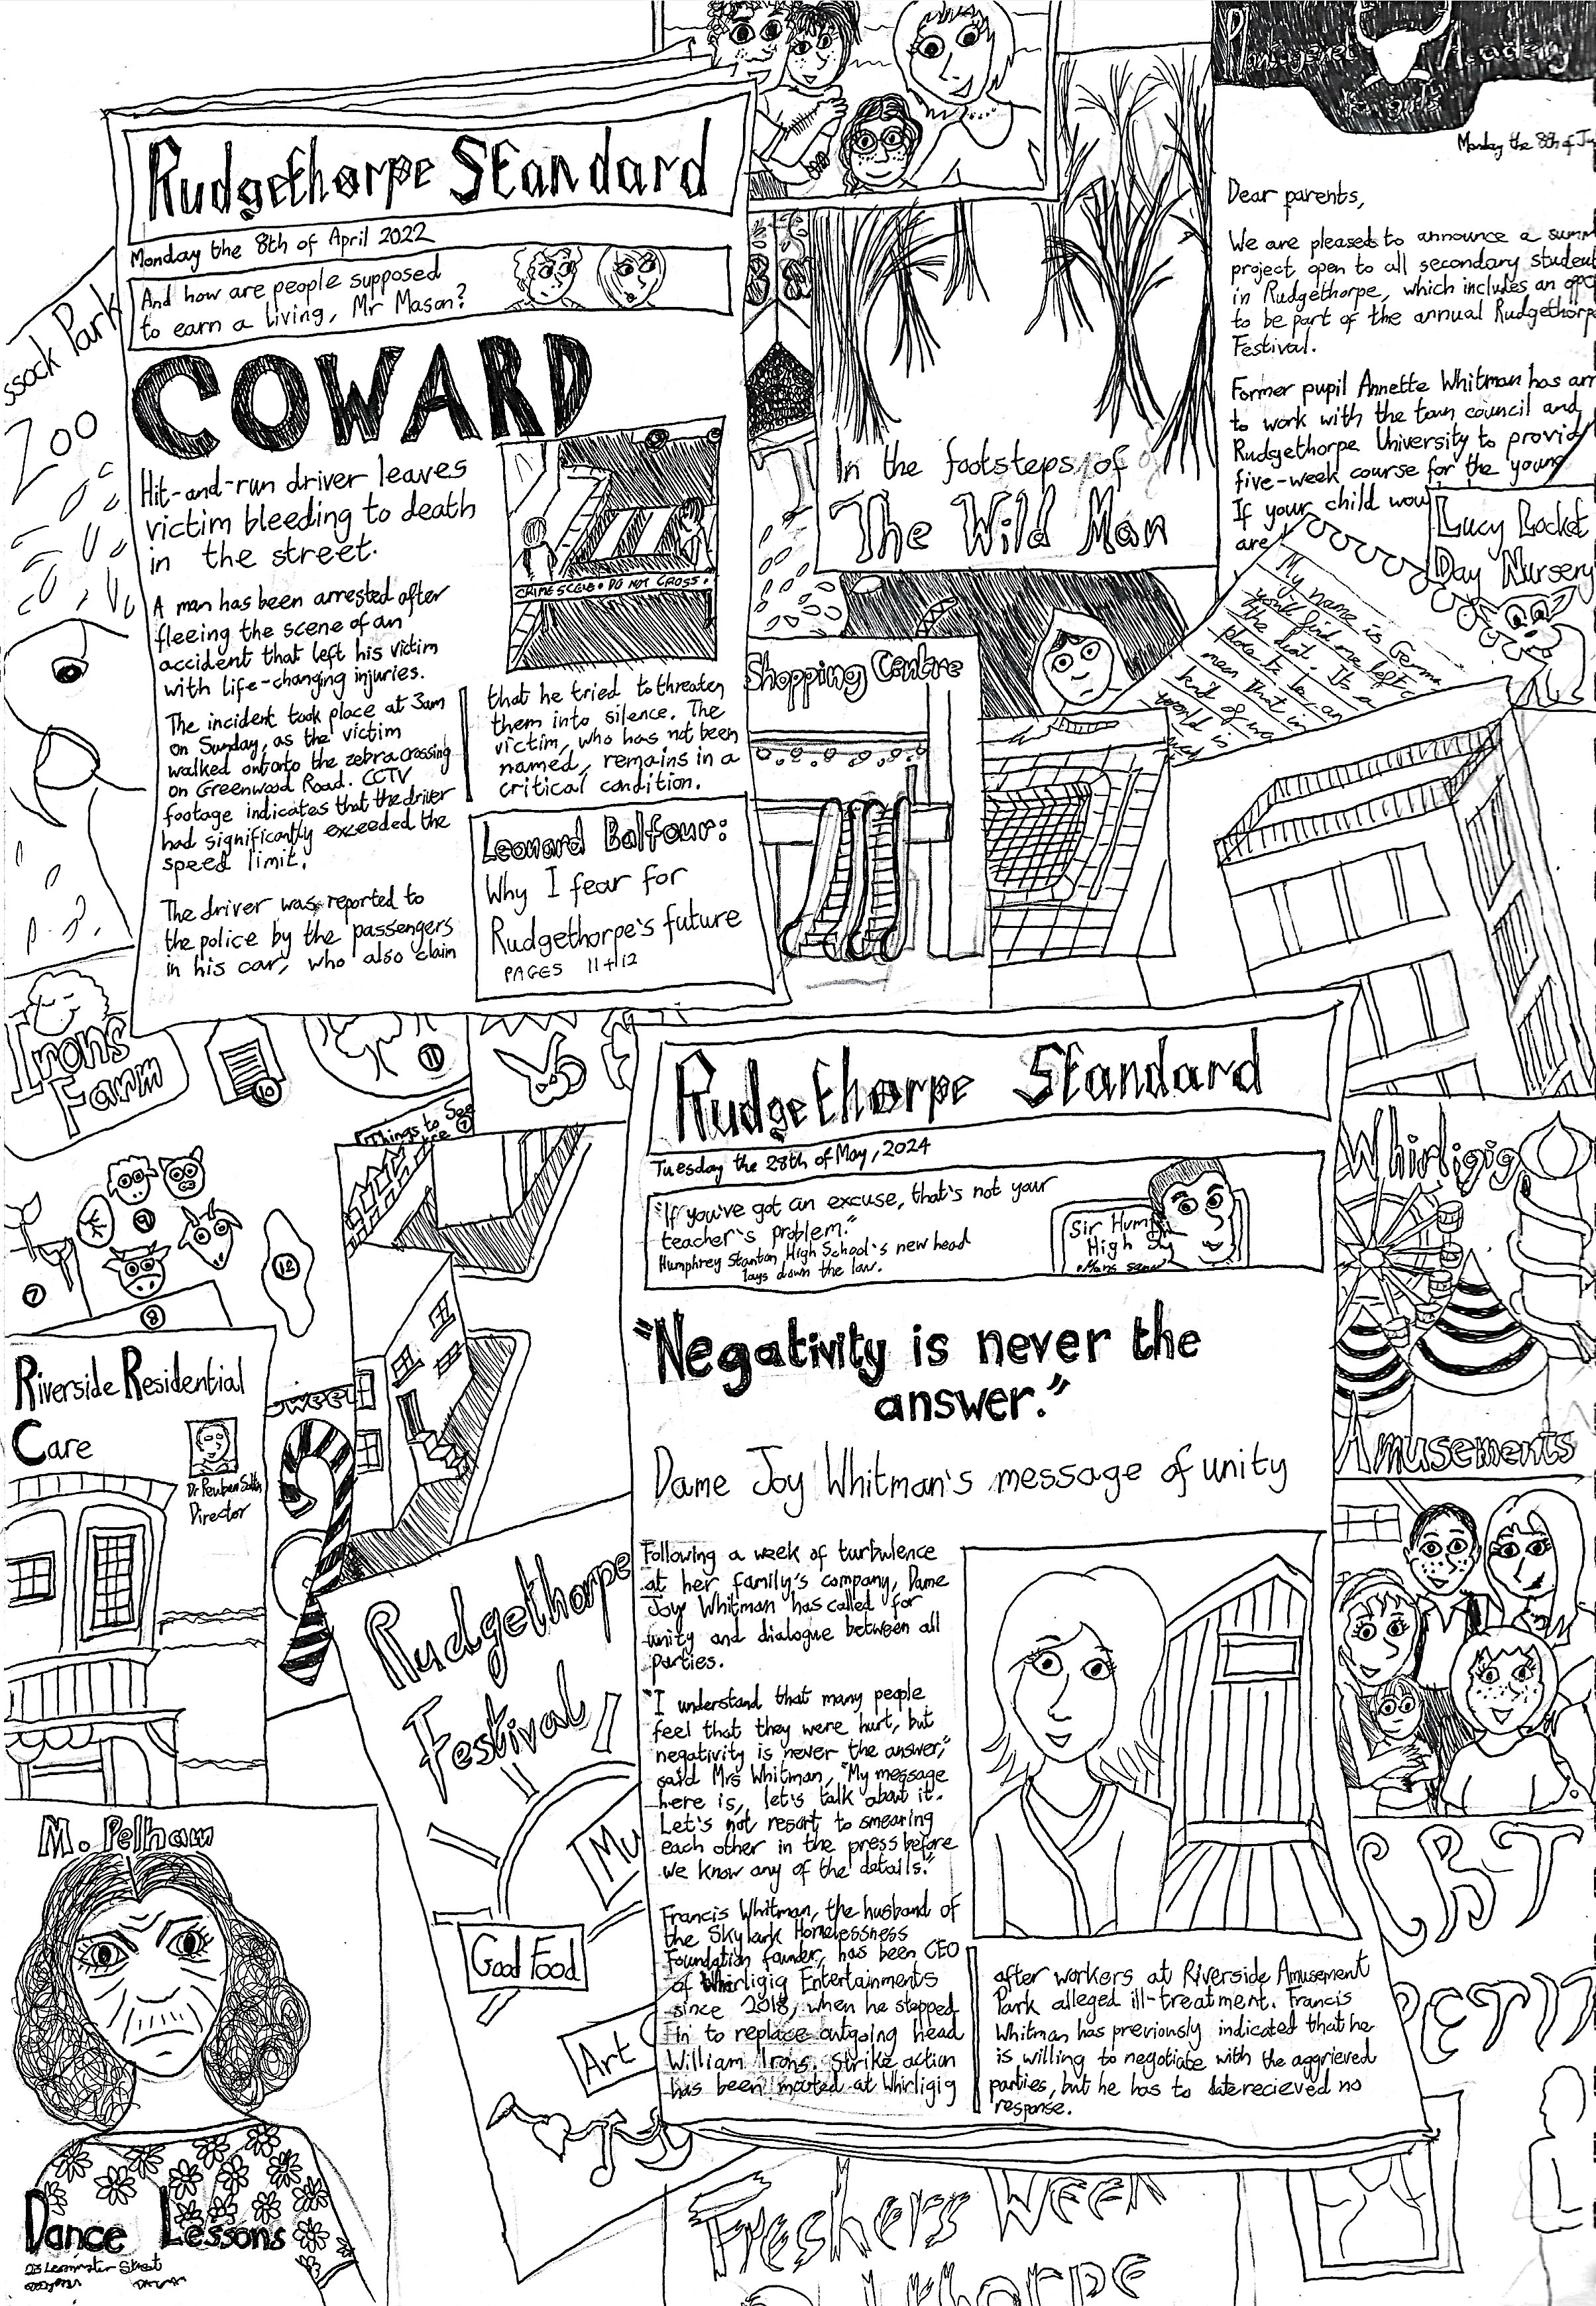 Rudgethorpe Standard
Monday the 8th of April 2022
And how are people supposed
to earn a living, Mr Mason?
COWARD
Hit-and-run driver leaves
victim bleeding to death
in the street.
A man has been arrested after
fleeing the scene of an
accident that left his victim
with life-changing injuries.
The incident took place at 3am
on Sunday, as the victim
walked ontonto the zebra crossing
on Greenwood Road. CCTV
footage indicates that the driver
had significantly exceeded the
speed limit.
The driver was reported to
the police by the passengers
in his car, who also claim
CRIME SCENE • DO NOT CROSS •
that he tried to threaten
them into silence. The
victim, who has not been
named, remains in a
critical condition.
Leonard Balfour:
Why I fear for
Rudgethorpe's future
PAGES 11+12
ssock Park
Zoo
In the footsteps of
The Wild Man
Shopping Centre
Plantagenet Academy
for girls
Monday the 8th of Ju
Dear parents,
We are pleased to announce a summ
project open to all secondary student
in Rudgethorpe, which includes an opp
to be part of the annual Rudgethorp
Festival.
Former pupil Annette Whitman has arr
to work with the town council and
Rudgethorpe University to provid
five-week course for the young
If your child wou
are
Lucy Locket
Day Nursery
My name is
Irons
Farm
10
11
Things to See
7
9
8
12
Riverside Residential
Care
Dr Reuben
Director
Sweet
M. Pelham
Dance Lessons
23 Leominster Street
Rudgethorpe
Festival
Mu
Good Food
Art
Rudgethorpe Standard
Tuesday the 28th of May, 2024
"If you've got an excuse, that's not your
teacher's problem."
Humphrey Stanton High School's new head
lays down the law.
Sir Hump
High
"Negativity is never the
answer."
Dame Joy Whitman's message of unity
Following a week of turbulence
at her family's company, Dame
Joy Whitman has called for
unity and dialogue between all
parties.
"I understand that many people
feel that they were hurt, but
negativity is never the answer,"
said Mrs Whitman, "My message
here is, let's talk about it.
Let's not resort to smearing
each other in the press before
we know any of the details."
Francis Whitman, the husband of
the Skylark Homelessness
Foundation founder, has been CEO
of Whirligig Entertainments
since 2018, when he stepped
in to replace outgoing head
William Irons. Strike action
has been mooted at Whirligig
after workers at Riverside Amusement
Park alleged ill-treatment. Francis
Whitman has previously indicated that he
is willing to negotiate with the aggrieved
parties, but he has to date recieved no
response.
Whirligig
Amusements
ART
PETIT
Freshers Week